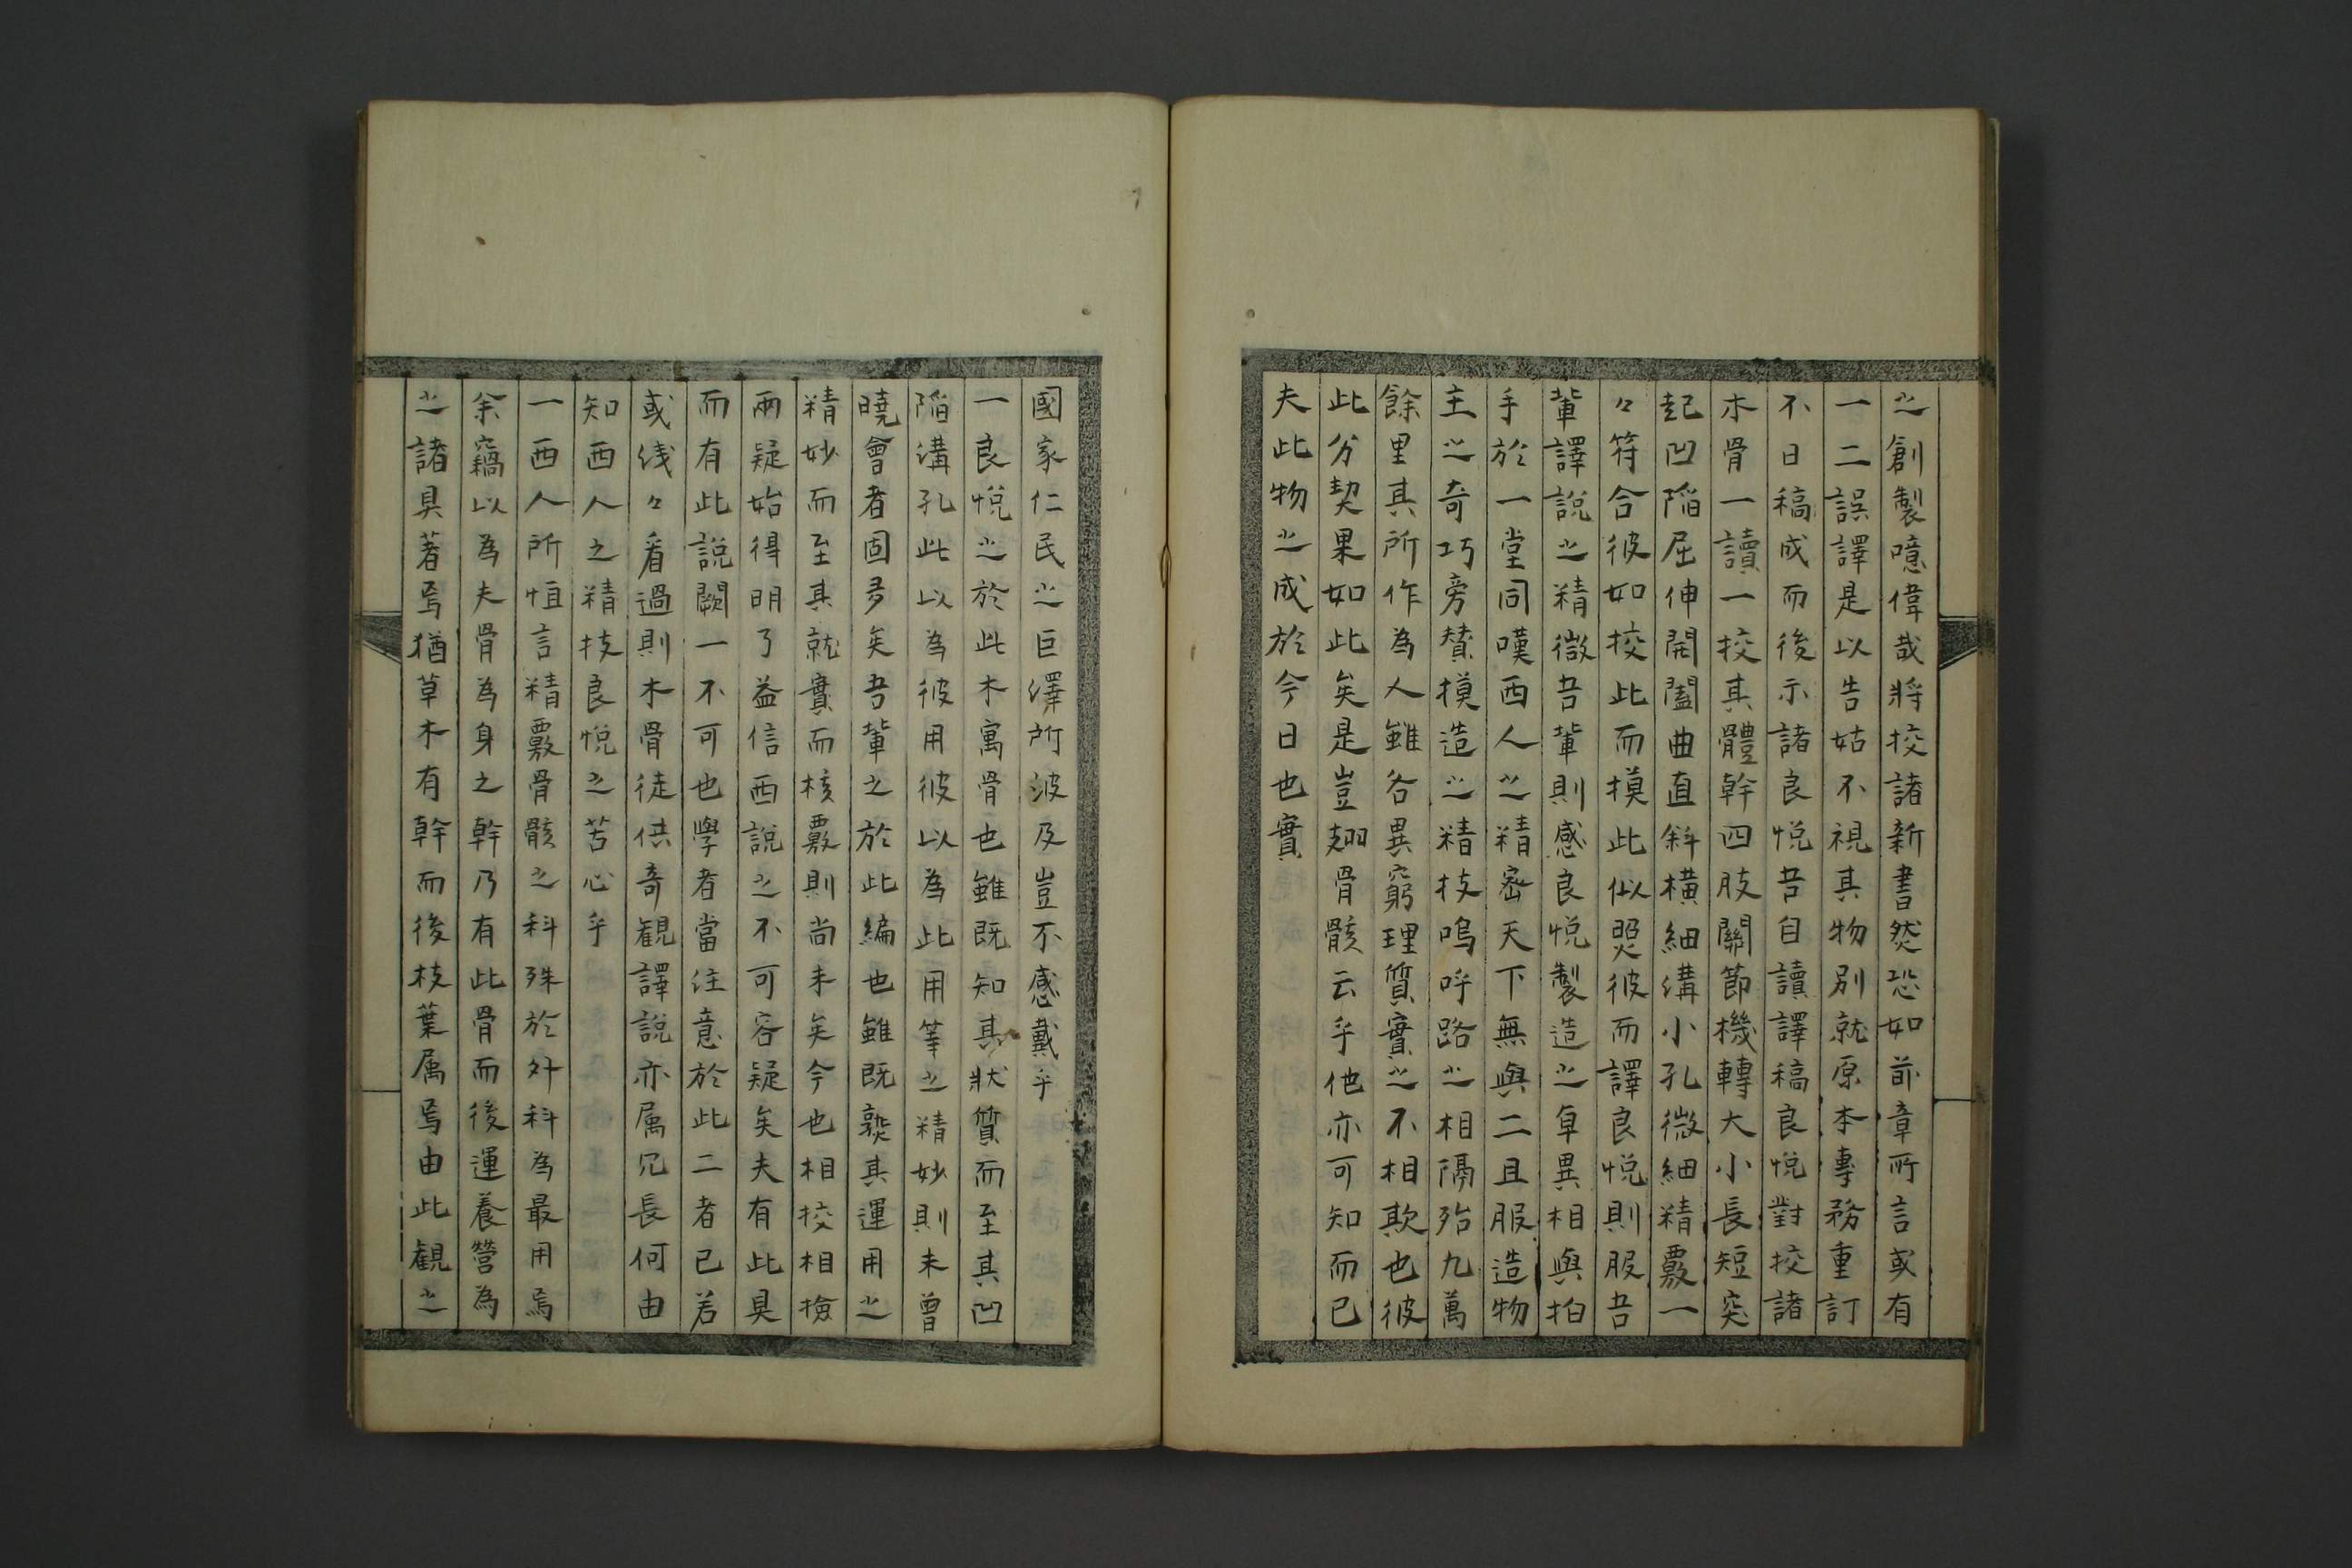 之創製噫偉哉將挍諸新書然恐如前章所言或有
一二誤譯是以告姑不視其物別就原本專務重訂
不日稿成而後示諸良悅吾自讀譯稿良悅對挍諸
木骨一讀一挍其體幹四肢關節機轉大小長短突
起凹陷屈伸開闔曲直斜橫細溝小孔微細精覈一
々符合彼如挍此而摸此似照彼而譯良悅則服吾
輩譯說之精微吾輩則感良悅製造之卓異相與拍
手於一堂同嘆西人之精密天下無與二且服造物
主之奇巧旁賛摸造之精技嗚呼路之相隔殆九萬
餘里其所作為人雖各異窮理質實之不相欺也彼
此分契果如此矣是豈翅骨骸云乎他亦可知而已
夫此物之成於今日也實
國家仁民之巨澤所波及豈不感戴乎
一良悅之於此木寓骨也雖既知其狀質而至其凹
陷溝孔此以為彼用彼以為此用等之精妙則未曾
曉會者固多矣吾輩之於此編也雖既熟其運用之
精妙而至其就實而核覈則尚未矣今也相挍相撿
兩疑始得明了益信西說之不可容疑矣夫有此具
而有此說闕一不可也學者當注意於此二者已若
或淺々看過則木骨徒供奇觀譯說亦属冗長何由
知西人之精技良悅之苦心乎
一西人所恒言精覈骨骸之科殊於外科為最用焉
余竊以為夫骨為身之幹乃有此骨而後運養營為
之諸具著焉猶草木有幹而後枝葉属焉由此觀之